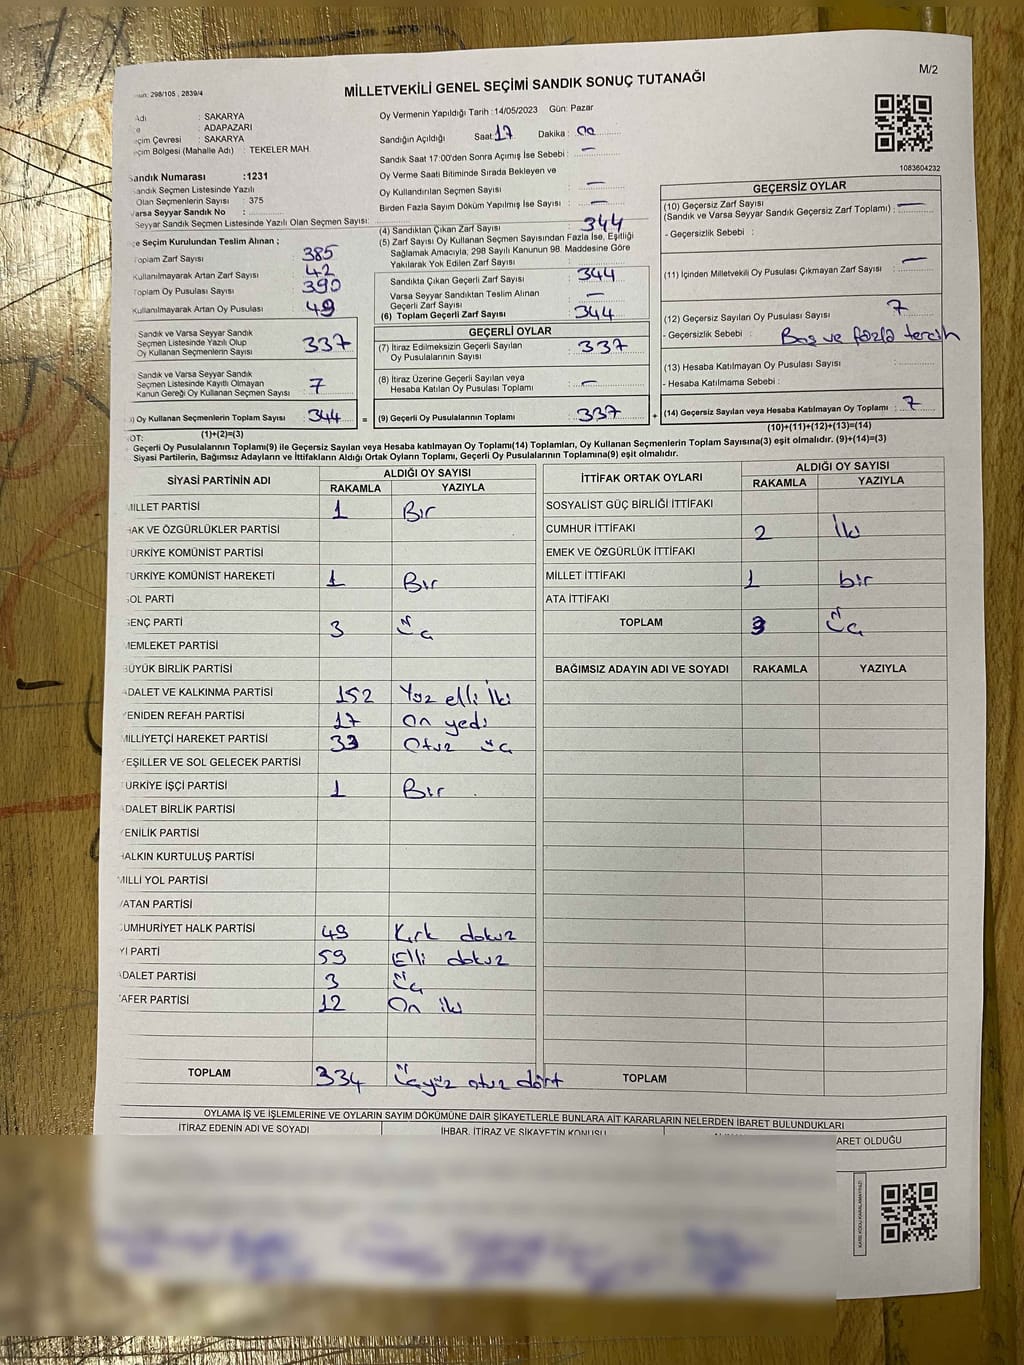 M/2
MİLLETVEKİLİ GENEL SEÇİMİ SANDIK SONUÇ TUTANAĞI
298/105 , 2839/4
: SAKARYA
: ADAPAZARI
: SAKARYA
(Mahalle Adı) : TEKELER MAH.
Sandık Numarası :1231
Sandık Seçmen Listesinde Yazılı
Olan Seçmenlerin Sayısı : 375
Varsa Seyyar Sandık No :
Seyyar Sandık Seçmen Listesinde Yazılı Olan Seçmen Sayısı:
Oy Vermenin Yapıldığı Tarih :14/05/2023 Gün: Pazar
Sandığın Açıldığı Saat 17 Dakika : 00
Sandık Saat 17:00'den Sonra Açımış İse Sebebi : —
Oy Verme Saati Bitiminde Sırada Bekleyen ve
Oy Kullandırılan Seçmen Sayısı : —
Birden Fazla Sayım Döküm Yapılmış İse Sayısı : —
1083604232
Seçim Kurulundan Teslim Alınan ;
Toplam Zarf Sayısı 385
Kullanılmayarak Artan Zarf Sayısı 42
Toplam Oy Pusulası Sayısı 390
Kullanılmayarak Artan Oy Pusulası 49
Sandık ve Varsa Seyyar Sandık
Seçmen Listesinde Yazılı Olup
Oy Kullanan Seçmenlerin Sayısı 337
Sandık ve Varsa Seyyar Sandık
Seçmen Listesinde Kayıtlı Olmayan
Kanun Gereği Oy Kullanan Seçmen Sayısı 7
) Oy Kullanan Seçmenlerin Toplam Sayısı 344 =
(1)+(2)=(3)
(4) Sandıktan Çıkan Zarf Sayısı : 344
(5) Zarf Sayısı Oy Kullanan Seçmen Sayısından Fazla İse, Eşitliği
Sağlamak Amacıyla, 298 Sayılı Kanunun 98. Maddesine Göre
Yakılarak Yok Edilen Zarf Sayısı :
Sandıkta Çıkan Geçerli Zarf Sayısı : 344
Varsa Seyyar Sandıktan Teslim Alınan
Geçerli Zarf Sayısı : —
(6) Toplam Geçerli Zarf Sayısı : 344
GEÇERLİ OYLAR
(7) İtiraz Edilmeksizin Geçerli Sayılan
Oy Pusulalarının Sayısı : 337
(8) İtiraz Üzerine Geçerli Sayılan veya
Hesaba Katılan Oy Pusulası Toplamı : —
(9) Geçerli Oy Pusulalarının Toplamı : 337 +
GEÇERSİZ OYLAR
(10) Geçersiz Zarf Sayısı : —
(Sandık ve Varsa Seyyar Sandık Geçersiz Zarf Toplamı)
- Geçersizlik Sebebi :
(11) İçinden Milletvekili Oy Pusulası Çıkmayan Zarf Sayısı : —
(12) Geçersiz Sayılan Oy Pusulası Sayısı : 7
- Geçersizlik Sebebi : Boş ve fazla tercih
(13) Hesaba Katılmayan Oy Pusulası Sayısı :
- Hesaba Katılmama Sebebi :
(14) Geçersiz Sayılan veya Hesaba Katılmayan Oy Toplamı : 7
(10)+(11)+(12)+(13)=(14)
NOT:
Geçerli Oy Pusulalarının Toplamı(9) ile Geçersiz Sayılan veya Hesaba katılmayan Oy Toplamı(14) Toplamları, Oy Kullanan Seçmenlerin Toplam Sayısına(3) eşit olmalıdır. (9)+(14)=(3)
Siyasi Partilerin, Bağımsız Adayların ve İttifakların Aldığı Ortak Oyların Toplamı, Geçerli Oy Pusulalarının Toplamına(9) eşit olmalıdır.
SİYASİ PARTİNİN ADI ALDIĞI OY SAYISI
RAKAMLA YAZIYLA
MİLLET PARTİSİ 1 Bir
HAK VE ÖZGÜRLÜKLER PARTİSİ
TÜRKİYE KOMÜNİST PARTİSİ
TÜRKİYE KOMÜNİST HAREKETİ 1 Bir
SOL PARTİ
GENÇ PARTİ 3 Üç
MEMLEKET PARTİSİ
BÜYÜK BİRLİK PARTİSİ
ADALET VE KALKINMA PARTİSİ 152 Yüz elli iki
YENİDEN REFAH PARTİSİ 17 On yedi
MİLLİYETÇİ HAREKET PARTİSİ 33 Otuz üç
YEŞİLLER VE SOL GELECEK PARTİSİ
TÜRKİYE İŞÇİ PARTİSİ 1 Bir
ADALET BİRLİK PARTİSİ
YENİLİK PARTİSİ
HALKIN KURTULUŞ PARTİSİ
MİLLİ YOL PARTİSİ
VATAN PARTİSİ
CUMHURİYET HALK PARTİSİ 49 Kırk dokuz
İYİ PARTİ 59 Elli dokuz
ADALET PARTİSİ 3 Üç
ZAFER PARTİSİ 12 On iki
TOPLAM 334 Üçyüz otuz dört
İTTİFAK ORTAK OYLARI ALDIĞI OY SAYISI
RAKAMLA YAZIYLA
SOSYALİST GÜÇ BİRLİĞİ İTTİFAKI
CUMHUR İTTİFAKI 2 İki
EMEK VE ÖZGÜRLÜK İTTİFAKI
MİLLET İTTİFAKI 1 bir
ATA İTTİFAKI
TOPLAM 3 Üç
BAĞIMSIZ ADAYIN ADI VE SOYADI RAKAMLA YAZIYLA
TOPLAM
OYLAMA İŞ VE İŞLEMLERİNE VE OYLARIN SAYIM DÖKÜMÜNE DAİR ŞİKAYETLERLE BUNLARA AİT KARARLARIN NELERDEN İBARET BULUNDUKLARI
İTİRAZ EDENİN ADI VE SOYADI
İHBAR, İTİRAZ VE ŞİKAYETİN KONUSU
İBARET OLDUĞU